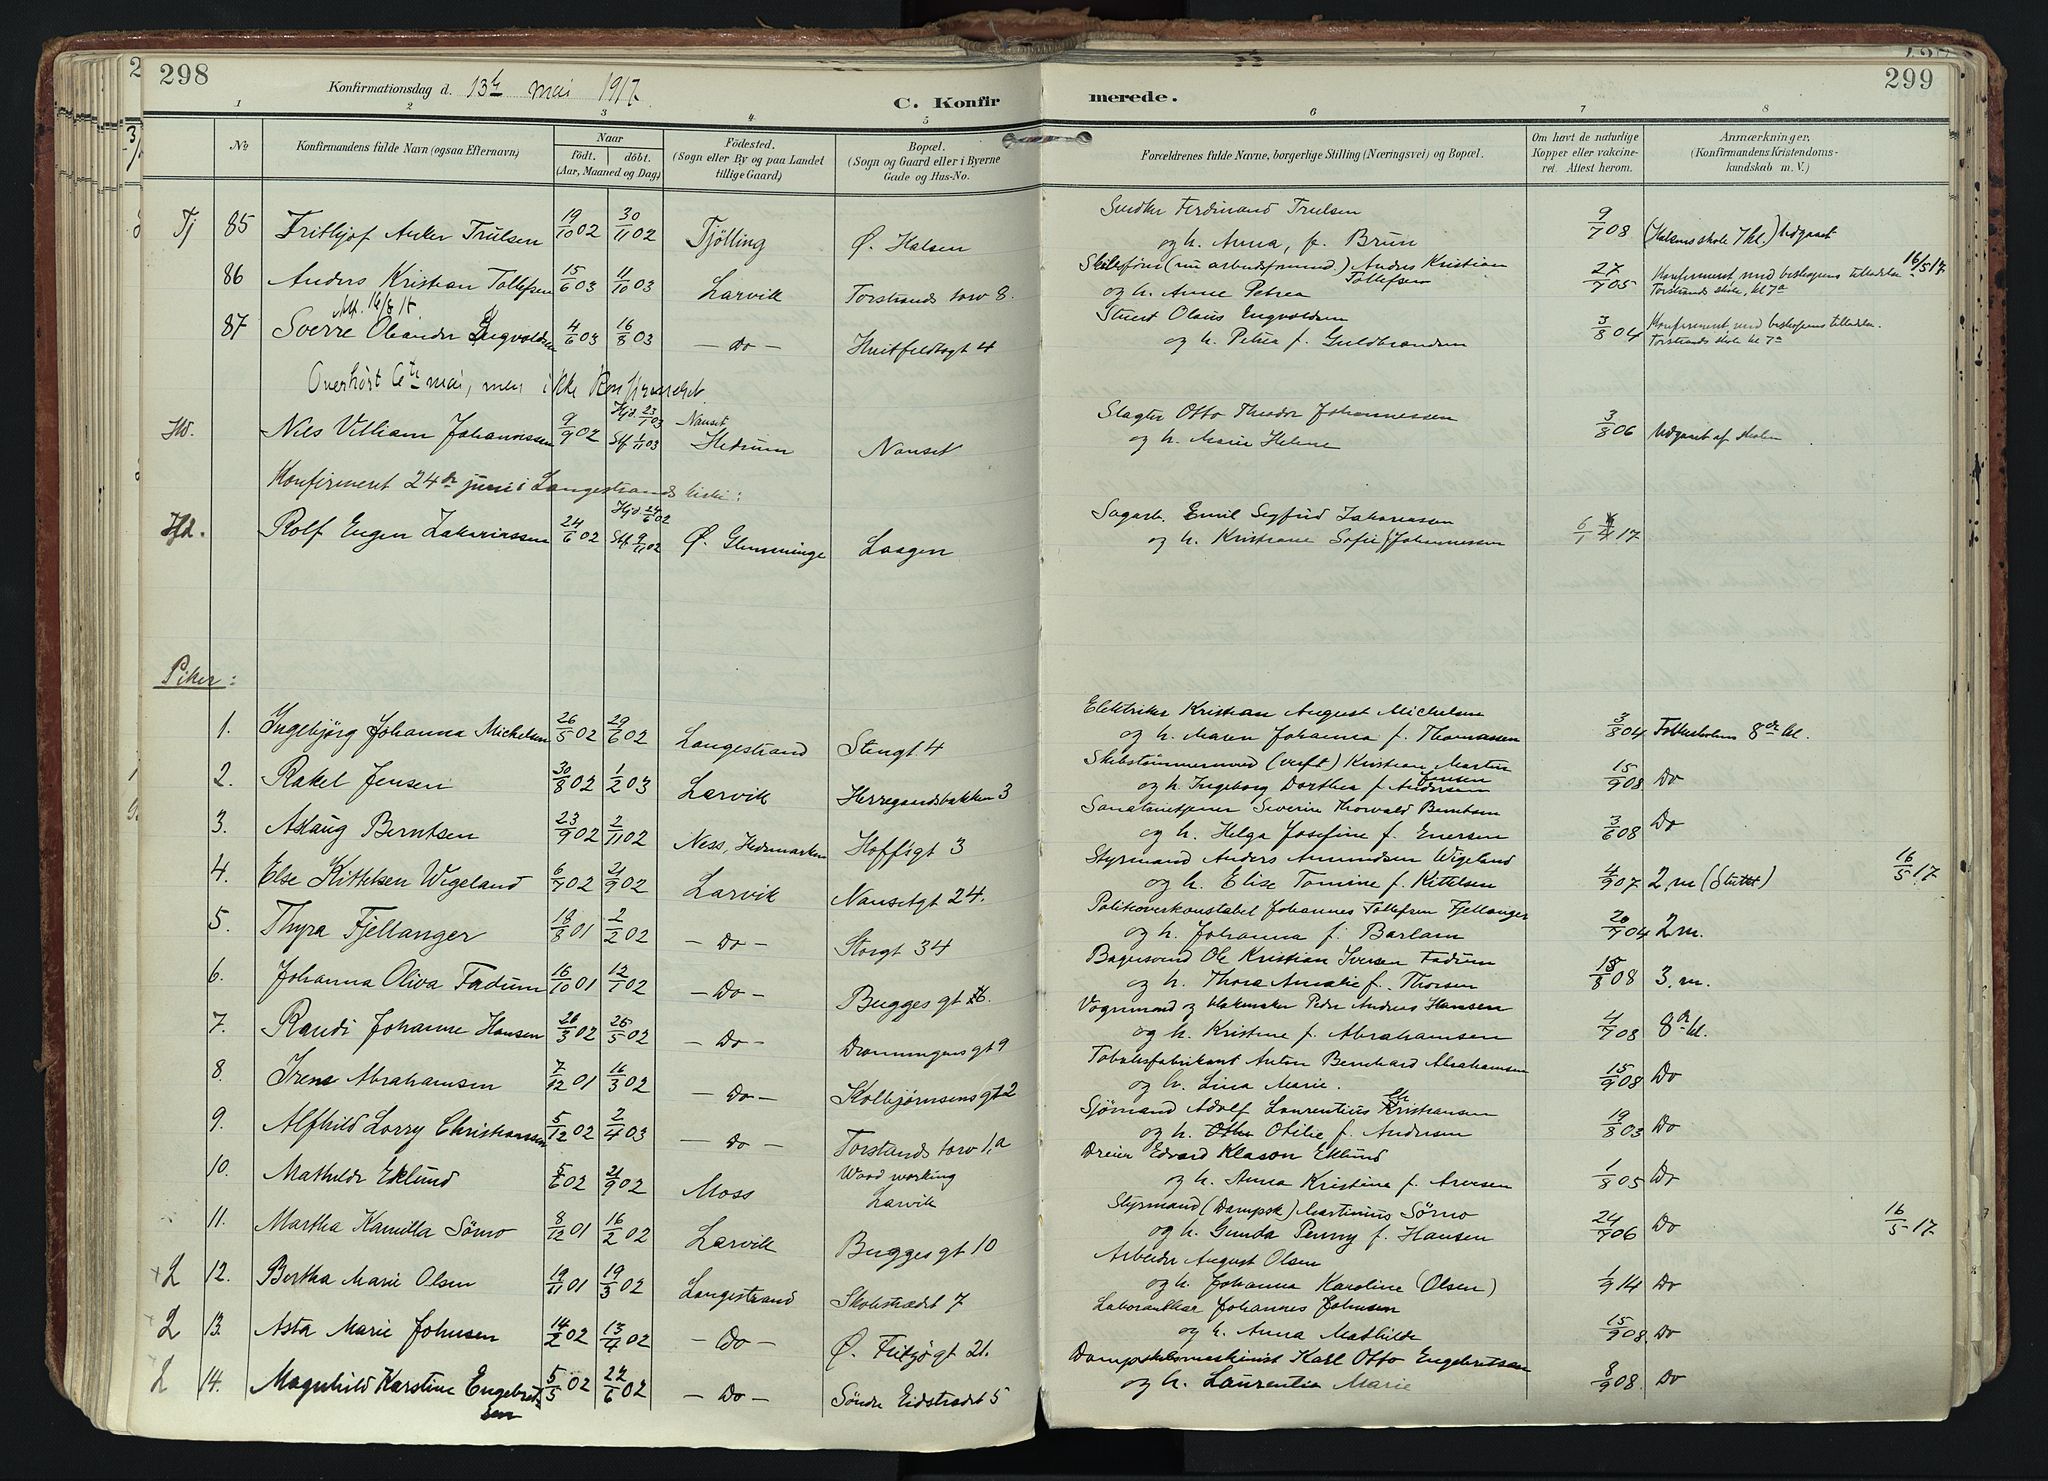 298
Konfirmationsdag d. 13de mai 1917.
C. Konfirmerede.
299
1 2 3 4 5 6 7 8
No
Konfirmandens fulde Navn (ogsaa Efternavn)
Naar
født. døbt.
(Aar, Maaned og Dag)
Fødested.
(Sogn eller By og paa Landet
tillige Gaard)
Bopæl.
(Sogn og Gaard eller i Byerne
Gade og Hus-No.
Forældrenes fulde Navne, borgerlige Stilling (Næringsvei) og Bopæl.
Om havt de naturlige
Kopper eller vakcine-
ret. Attest herom.
Anmærkninger,
(Konfirmandens Kristendoms-
kundskab m. V.)
Tj 85 Frithjof Anker Trulsen 19/10 02 30/11 02 Tjølling Ø. Halsen
Ferdinand Trulsen
og h. Anna, f. Brun 9/7 08 (Halsens skole 7 kl.) Udgaaet
86 Anders Kristian Tollefsen 15/6 03 11/10 03 Larvik Torstrands torv 8.
Anders Kristian
Tollefsen
og h. Anne Petrea 27/7 05 Konfirmeret med biskopens tilladelse 16/5 17
Torstrands skole, kl 7a
87 Sverre Oleander Engvoldsen 4/6 03 16/8 03 - Do - Huitfeldtsgt 4
Stuert Olaus Engvoldsen
og h. Petrea f. Guldbrandsen 3/8 04 Konfirmeret med biskopens tilladelse.
Torstrands skole kl 7a
Overhørt 6te mai, men ikke konfirmeret.
Hd. Nils Villiam Johannessen 9/9 02 Hjd. 23/1 03 Stf 1/11 03 Nanset
Hedrum Nanset
Slagter Otto Theodor Johannessen
og h. Marie Helene 3/8 06 Udgaaet af skolen
Konfirmeret 24de juni i Langestrands kirke:
Hd. Rolf Eugen Zakariassen 24/6 02 Hjd. 24/6 02 Stf 9/11 02 Ø. Glemminge Laagen
Sagarb. Emil Sigfrid Zakariassen
og h. Kristiane Sofie Johannessen 6/1 17
Piker:
1. Ingebjørg Johanna Michelsen 26/5 02 29/6 02 Langestrand Stengt 4
Elektriker Kristian August Michelsen
og h. Maren Johanna f. Thomassen 3/8 04 Folkeskolens 8de kl.
2. Rakel Jensen 30/8 02 1/2 03 Larvik Herregaardsbakken 3
Skibstømmermand (verft) Kristian Martin
Jensen
og h. Ingeborg Dorthea f. Andersen 15/9 08 Do
3. Aslaug Berntsen 23/9 02 2/11 02 Ness, Hedemarken Hoffsgt 3
Severin Thorvald Berntsen
og h. Helga Josefine f. Enersen 3/6 08 Do
4. Else Kittelsen Wigeland 6/7 02 21/9 02 Larvik Nansetgt 24.
Styrmand Anders Amundsen Wigeland
og h. Elise Tomine f. Kittelsen 4/9 07 2 m (sluttet) 16/5 17
5. Thyra Fjellanger 18/8 01 2/2 02 - Do - Storgt 34
Politioverkonstabel Johannes Tollefsen Fjellanger
og h. Johanna f. Barlam 20/7 04 2 m.
6. Johanna Oliva Fadum 16/10 01 12/1 02 - Do - Bugges gt
Bagersvend Ole Kristian Iversen Fadum
og h. Thora Amalie f. Thorsen 15/8 08 3. m.
7. Randi Johanne Hansen 26/3 02 25/5 02 - Do - Dronningens gt 9
Vognmand og Peder Andreas Hansen
og h. Kristine f. Abrahamsen 4/7 08 8de kl.
8. Irene Abrahamsen 7/12 01 16/3 02 - Do - Kolbjørnsens gt 2
Tobaksfabrikant Anton Bernhard Abrahamsen
og h. Lina Marie. 15/9 08 Do
9. Alfhild Lorry Christiansen 5/12 02 2/4 03 - Do - Torstrands torv 1,a
Sjømand Adolf Laurentius Christiansen
og h. Otilie f. Andersen 19/8 03 Do
10. Mathilde Eklund 5/6 02 21/9 02 Moss Wood working
Larvik
Dreier Edvard Klason Eklund
og h. Anna Kristine f. Arvesen 1/8 05 Do
11. Martha Kamilla Sørno 8/12 01 16/2 02 Larvik Bugges gt 10
Styrmand (Dampsk) Martinius Sørno
og h. Gunda Penny f. Hansen 24/7 06 Do 16/5 17
L 12. Bertha Marie Olsen 19/11 01 19/3 02 Langestrand Skolestrædet 7
Arbeider August Olsen
og h. Johanna Karoline (Olsen) 1/9 14 Do
L 13. Asta Marie Johnsen 14/2 02 13/4 02 - Do - Ø. Fritzø gt 21.
Johannes Johnsen
og h. Anna Mathilde 15/9 08. Do
L 14. Magnhild Karstine Engebret-
sen 5/5 02 22/6 02 - Do - Søndre Eidstrædet 5
Dampskibsmaskinist Karl Otto Engebretsen
og h. Laurentia Marie 8/9 08. Do